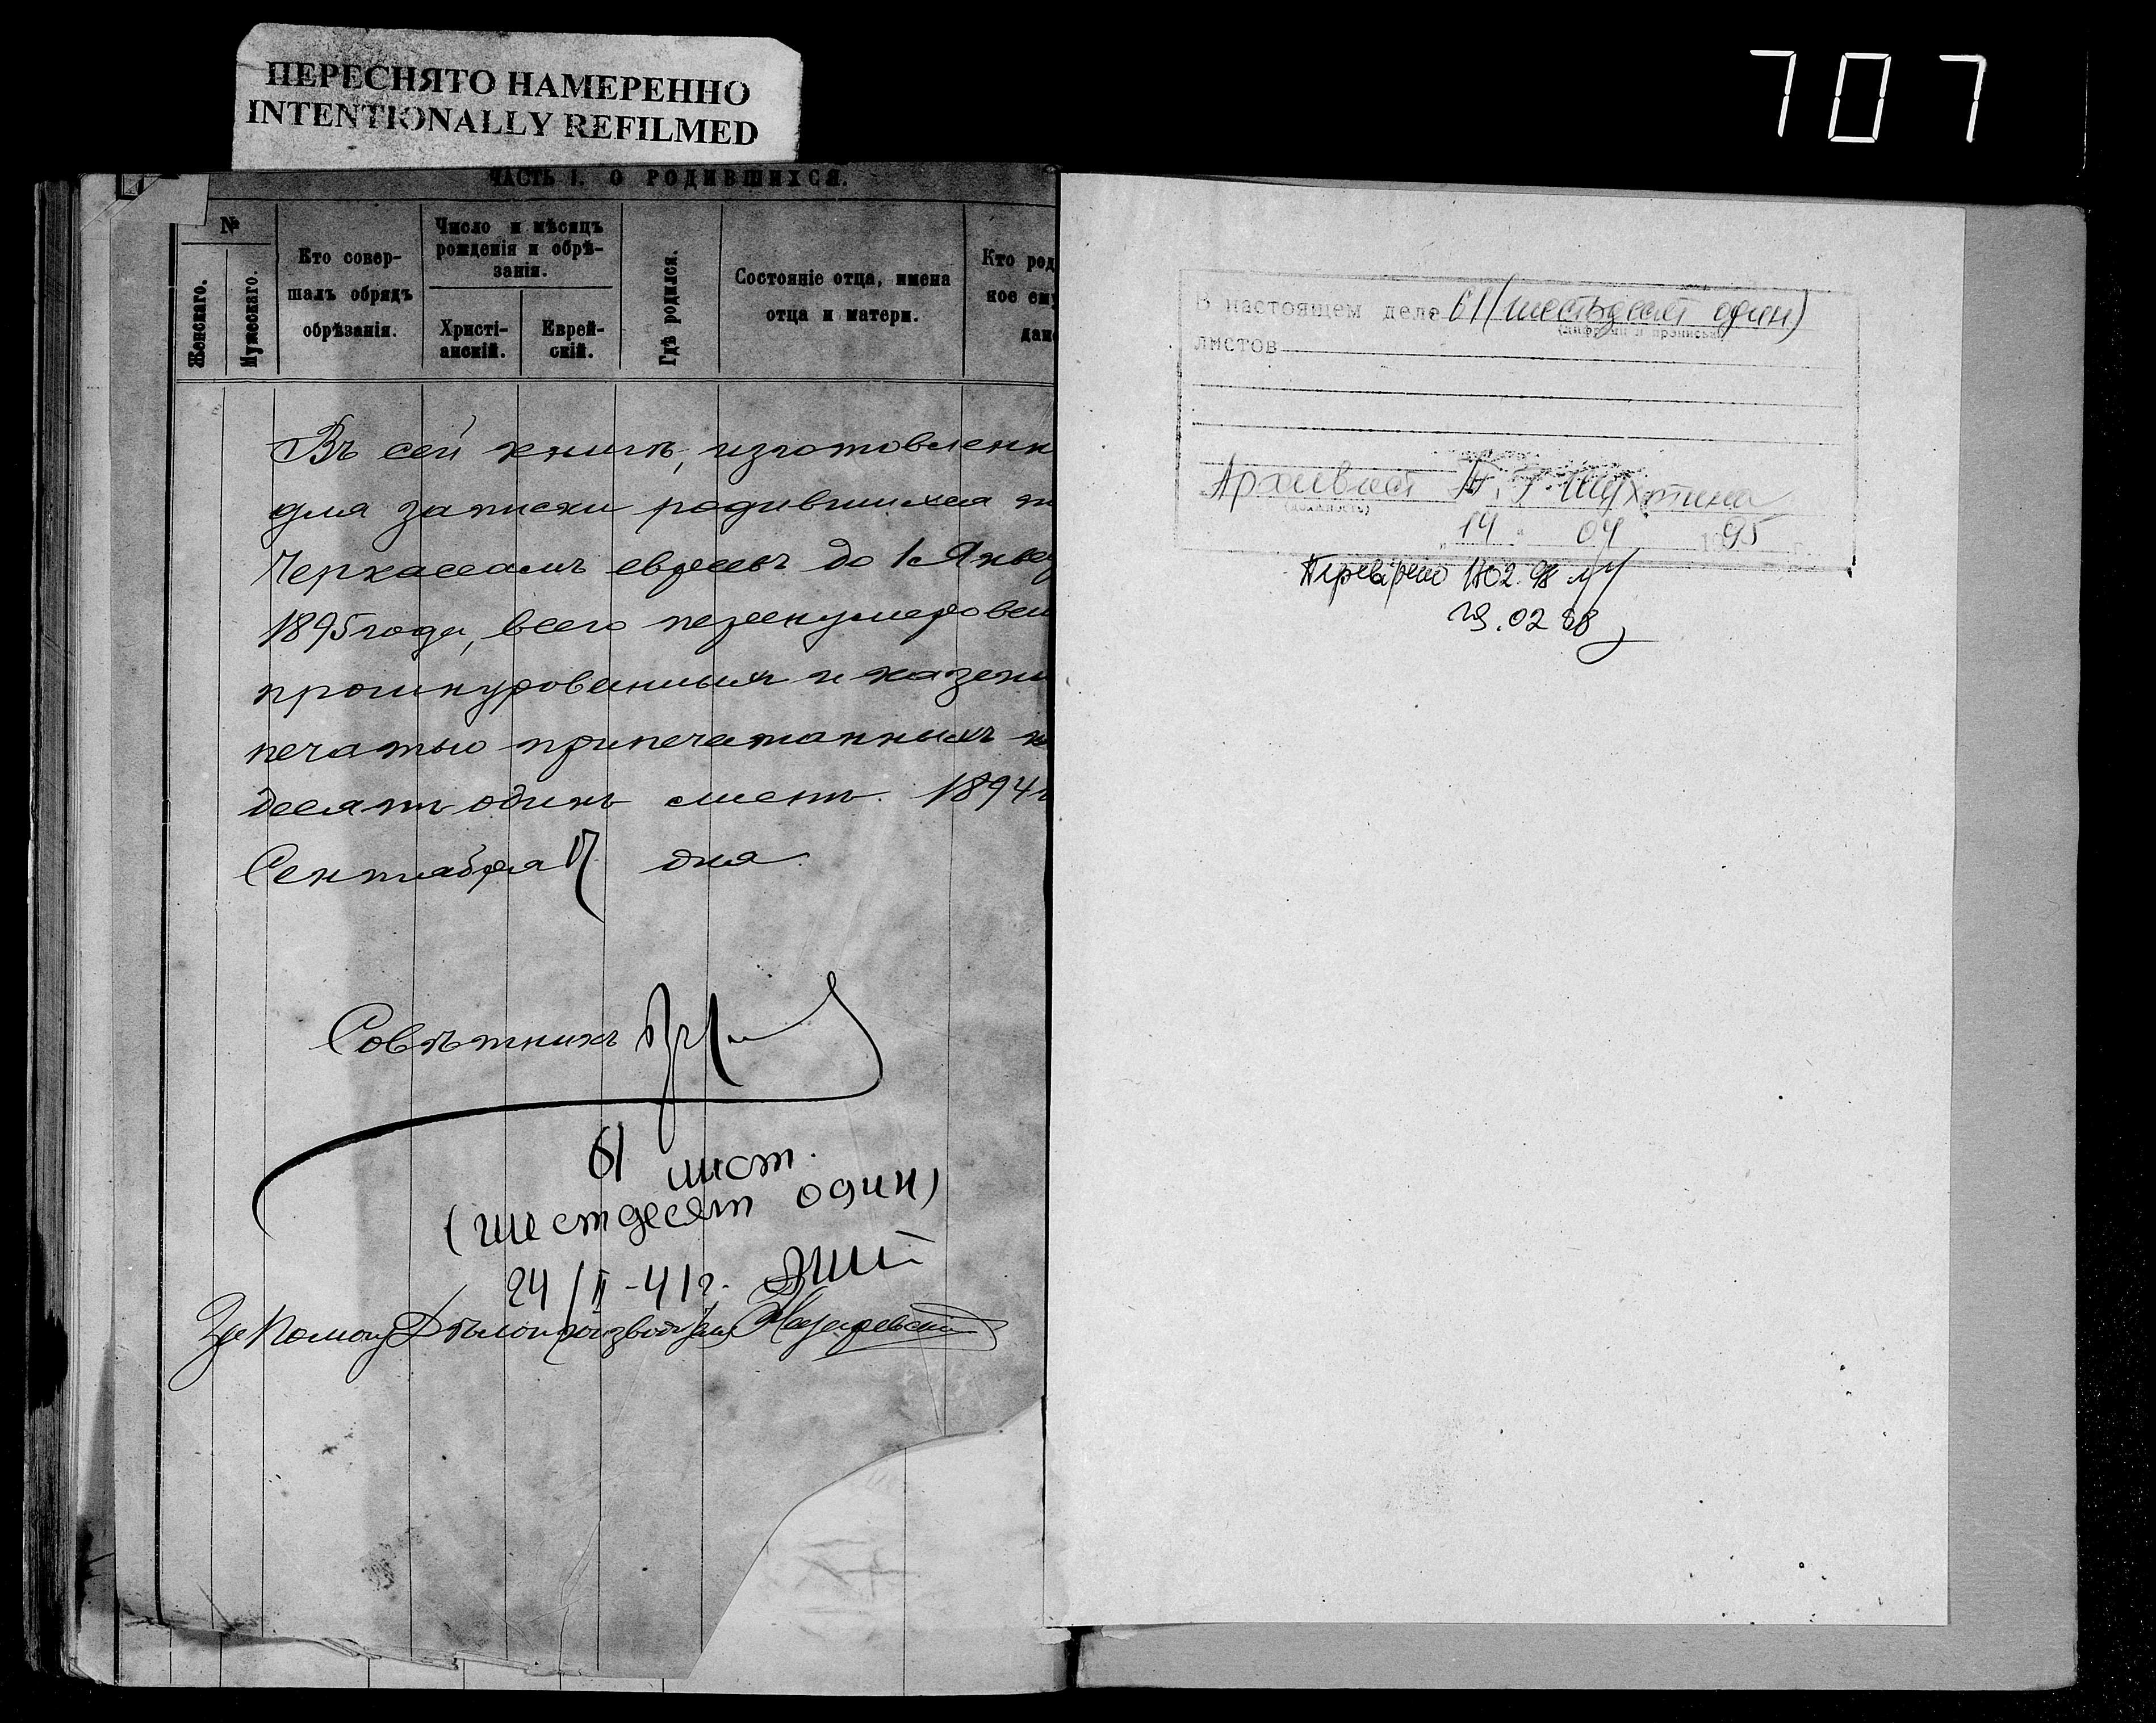 ПЕРЕСНЯТО НАМЕРЕННО
INTENTIONALLY REFILMED
707
ЧАСТЬ I. О РОДИВШИХСЯ.
№
Женскаго.
Мужескаго.
Кто совер-
шалъ обрядъ
обрѣзанія.
Число и мѣсяцъ
рожденія и обрѣ-
занія.
Христі-
анскій.
Еврей-
скій.
Гдѣ родился.
Состояніе отца, имена
отца и матери.
Кто род
ное ему
дан
Въ сей книгѣ, изготовленн
для записки родившихся п
Черкассамъ евреевъ до 1 Янва
1895 года, всего перенумерован
прошнурованныхъ и казенн
печатью припечатанныхъ
десятъ одинъ листъ. 1894 г
Сентября 17 дня
Совѣтникъ
61 лист.
(шестдесят один)
24/II-41г.
За Помощ Дѣлопроизводителя Назаревскій
В настоящем деле 61 (шестьдесят один)
(цифрами и прописью)
листов
Архивист
(должность)
14 04 1995 г.
Перевірено 1802.98
23.02 98